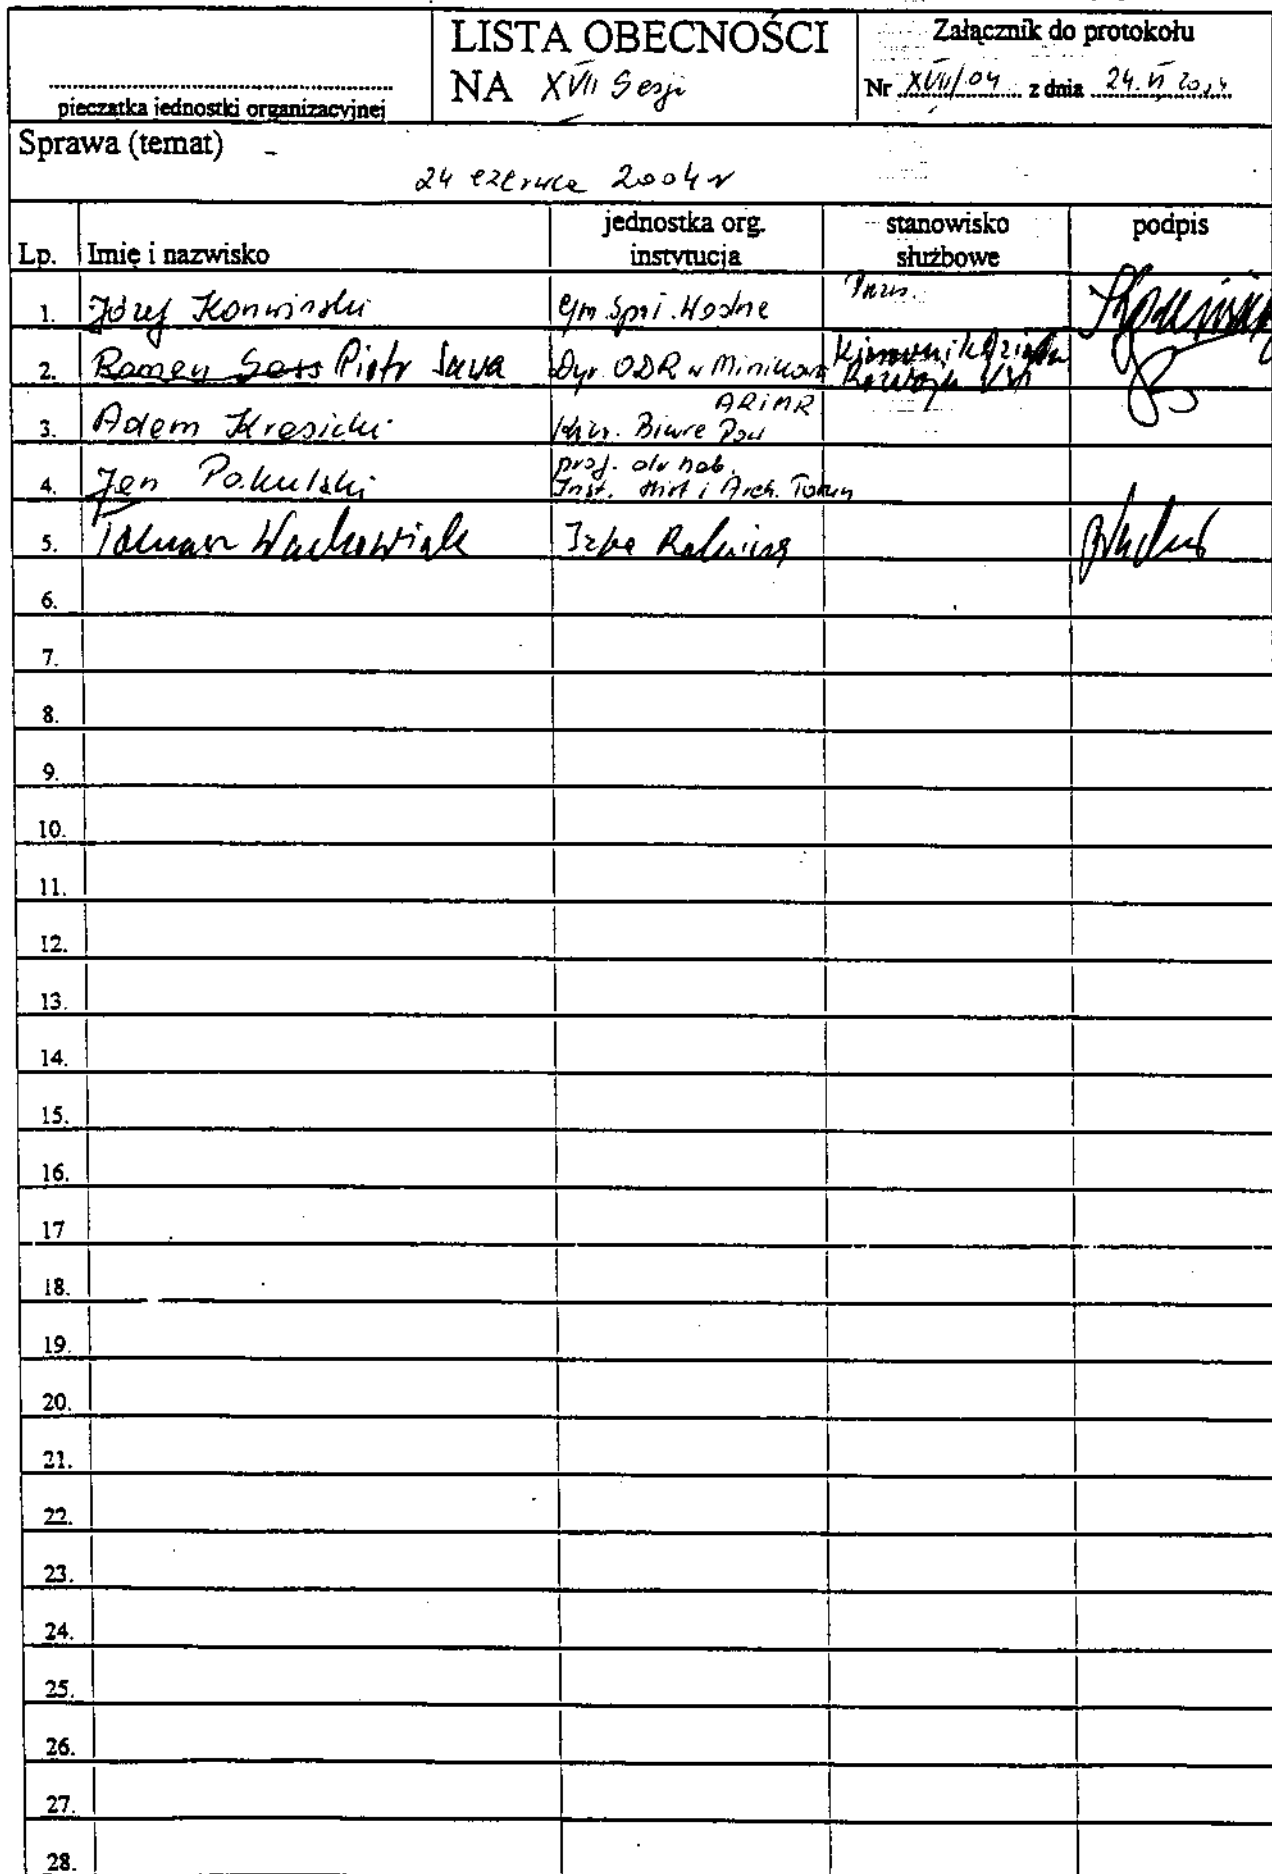 LISTA OBECNOŚCI
NA XVII Sesji
Załącznik do protokołu
Nr XVII/04 z dnia 24.VI 2004
pieczątka jednostki organizacyjnej
Sprawa (temat) -
24 czerwca 2004 r
Lp. Imię i nazwisko jednostka org. instytucja stanowisko służbowe podpis
1. Józef Konwiński Gm. Spół. Wodne
2. Roman Sass Piotr Sawa Dyr. ODR w Minikowie Kierownik Działu Rozwoju WSI
3. Adam Krasicki Kier. Biura Pow ARiMR
4. Jan Pakulski prof. dr hab. Inst. Hist i Arch. Toruń
5. Tomasz Wachowiak Izba Rolnicza
6.
7.
8.
9.
10.
11.
12.
13.
14.
15.
16.
17
18.
19.
20.
21.
22.
23.
24.
25.
26.
27.
28.